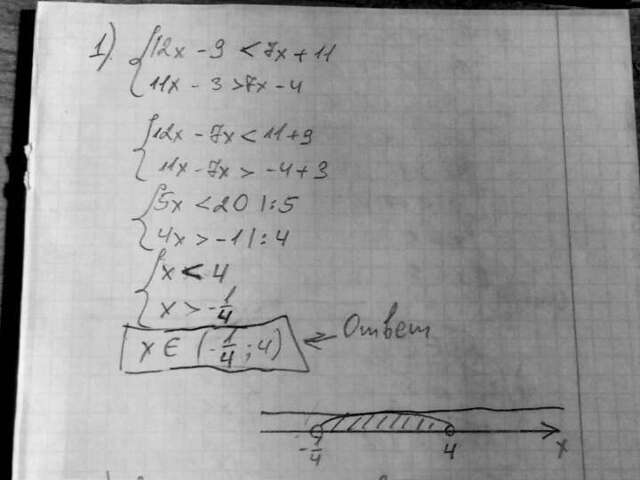 1). { 12x - 9 < 7x + 11
11x - 3 > 7x - 4
{ 12x - 7x < 11 + 9
11x - 7x > -4 + 3
{ 5x < 20 | : 5
4x > -1 | : 4
{ x < 4
x > -1/4
x ∈ (-1/4 ; 4) ⇐ Ответ
-1/4 4 x